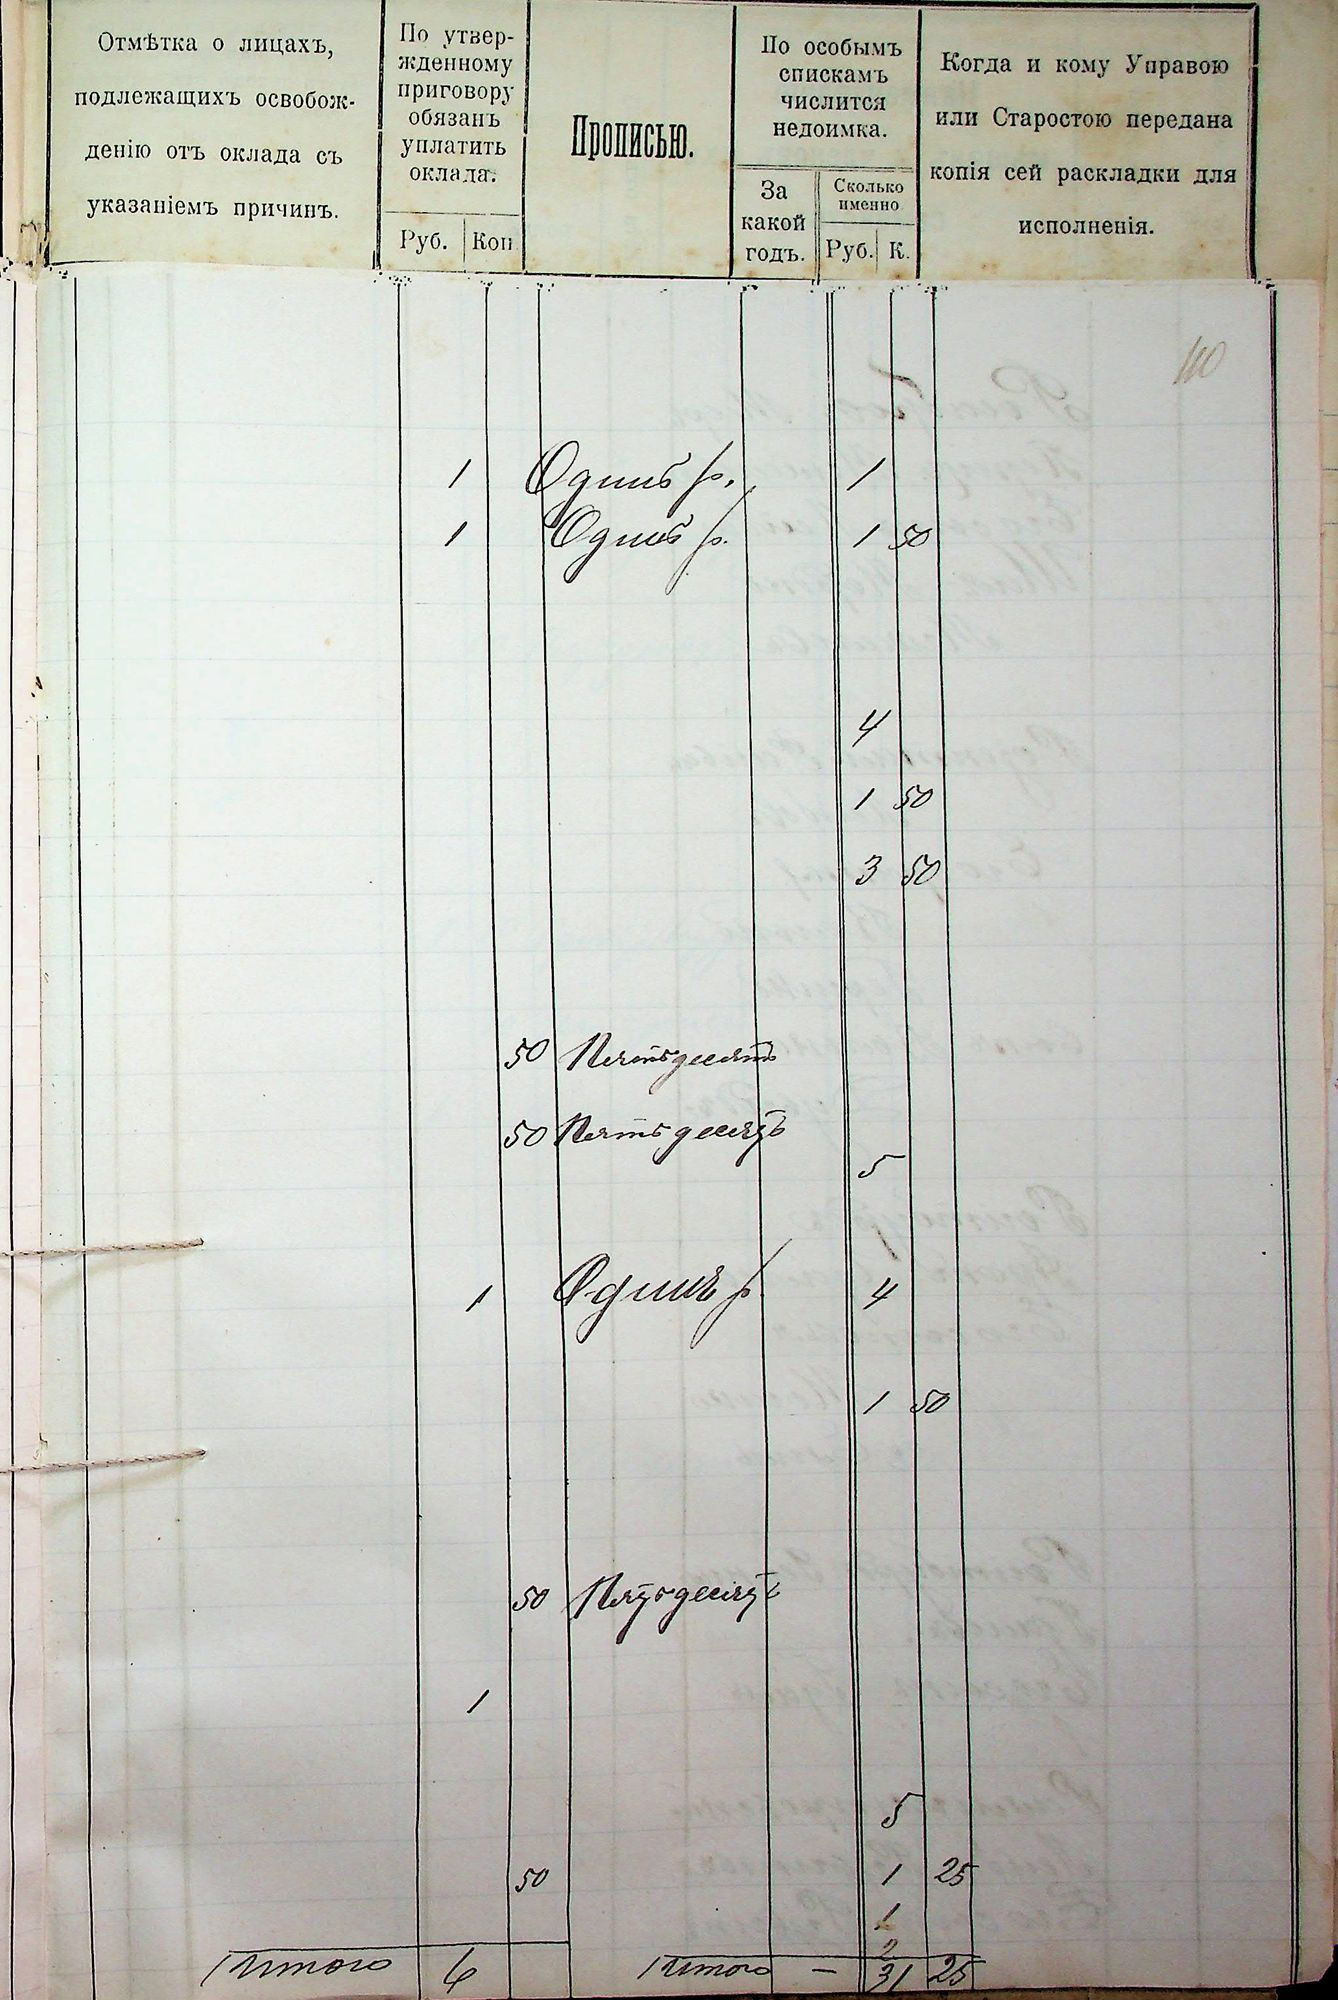 Отмѣтка о лицахъ,
подлежащихъ освобож-
денію отъ оклада съ
указаніемъ причинъ.
По утвер-
жденному
приговору
обязанъ
уплатить
оклада.
Руб. Коп
Прописью.
По особымъ
спискамъ
числится
недоимка.
За
какой
годъ.
Сколько
именно
Руб. К.
Когда и кому Управою
или Старостою передана
копія сей раскладки для
исполненія.
110
1 Одинъ р. 1
1 Одинъ р. 1 50
4
1 50
3 50
50 Пятьдесятъ
50 Пятьдесятъ
5
1 Одинъ р. 4
1 50
50 Пятьдесятъ
1
5
50 1 25
1
2
Итого 6 Итого — 31 25